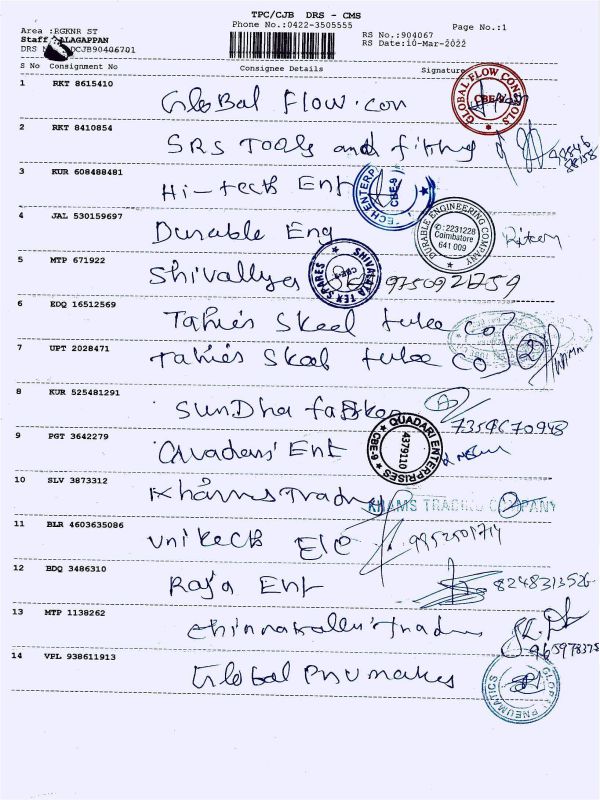 TPC/CJB DRS - CMS
Phone No.:0422-3505555
Page No.:1
Area :RGKNR ST
Staff :ALAGAPPAN
DRS N DCJB90406701
RS No.:904067
RS Date:10-Mar-2022
S No Consignment No Consignee Details Signature
1 RKT 8615410
Global Flow.con
GLOBAL FLOW CONTROLS CBE-9
2 RKT 8410854
SRS Tools and fitting
3 KUR 608488481
Hi-tech Ent
ECH ENTERP CBE-9
4 JAL 530159697
Durable Eng
DURABLE ENGINEERING COMPANY
:2231228
Coimbatore
641 009
5 MTP 671922
Shivallya
SHIVALAYA TEX SPARES CBE-9
6 EDQ 16512569
Steel tube Co
7 UPT 2028471
Steel tube Co
8 KUR 525481291
Sundha
7359670948
9 PGT 3642279
Quadari Ent
QUADARI ENTERPRISES CBE-9
4379110
10 SLV 3873312
Khams Trading
KHAMS TRADING COMPANY
11 BLR 4603635086
Unitech Ele
12 BDQ 3486310
Raja Ent
8248313526
13 MTP 1138262
965978375
14 VPL 938611913
Global Pneumatics
GLOB PNEUMATICS